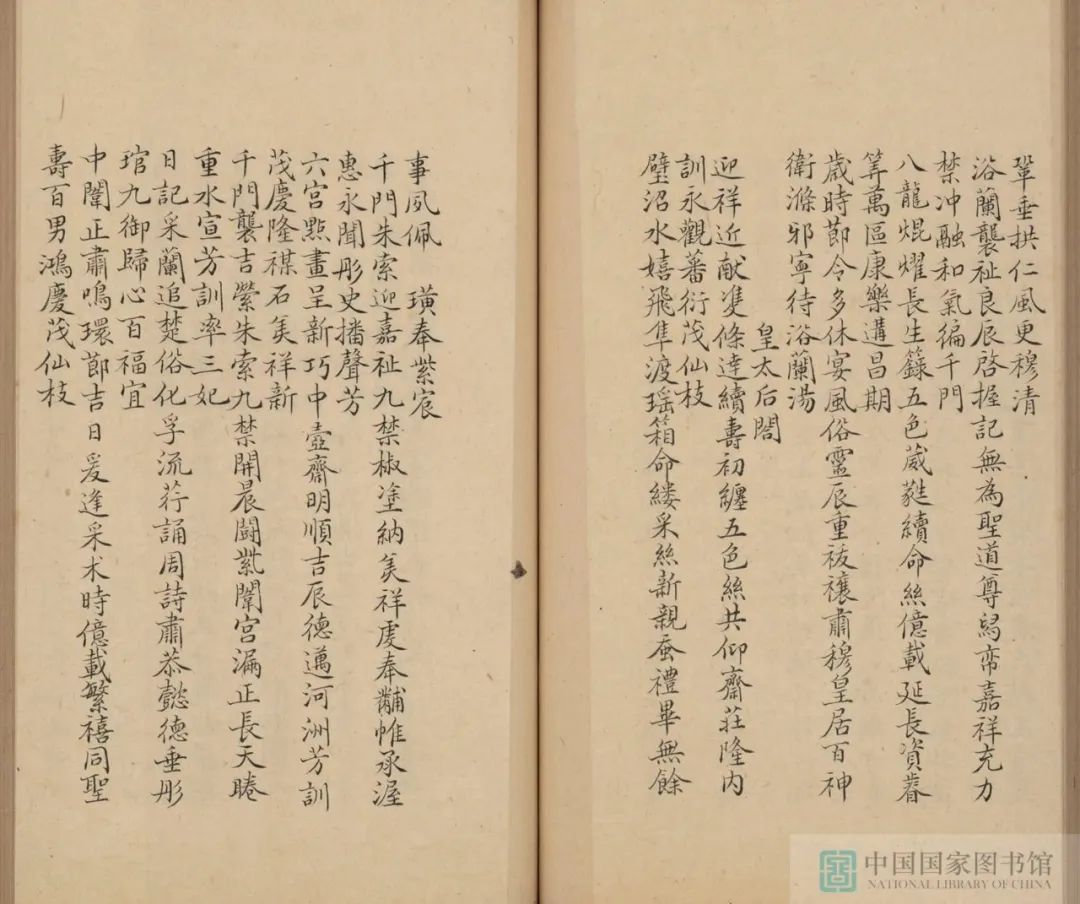 鞏垂拱仁風更穆清
浴蘭襲祉良辰啓握記無為聖道尊舄帟嘉祥充力
禁冲融和氣徧千門
八龍焜燿長生籙五色葳蕤續命絲億載延長資眷
筭萬區康樂遘昌期
歲時節令多休宴風俗靈辰重祓禳肅穆皇居百神
衛滌邪寧待浴蘭湯
皇太后閤
迎祥近献雙條達續壽初纏五色絲共仰齋莊隆内
訓永觀蕃衍茂仙枝
璧沼水嬉飛隼渡瑶箱命縷采絲新親蚕禮畢無餘
事夙佩 璜奉紫宸
千門朱索迎嘉祉九禁椒塗納羙祥虔奉黼帷承渥
惠永聞彤史播聲芳
六宫點畫呈新巧中壼齋明順吉辰德邁河洲芳訓
茂慶隆禖石羙祥新
千門襲吉縈朱索九禁開晨闢紫闈宫漏正長天睠
重水宣芳訓率三妃
日記采蘭追楚俗化孚流荇誦周詩肅恭懿德垂彤
琯九御歸心百福宜
中闈正肅鳴環節吉日爰逢采术時億載繁禧同聖
壽百男鴻慶茂仙枝
中国国家图书馆
NATIONAL LIBRARY OF CHINA